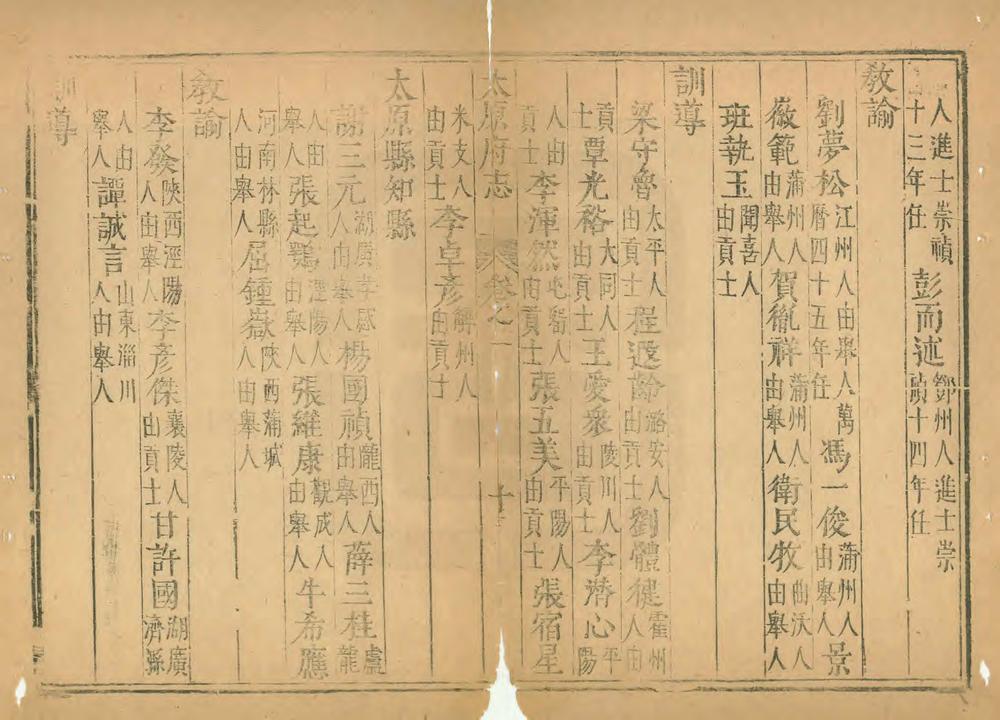 人進士崇禎十三年任彭而述鄧州人進士崇禎十四年任
教諭
劉夢松江州人由舉人萬曆四十五年任馮一俊蒲州人由舉人景
薇範蒲州人由舉人賀胤祥蒲州人由舉人衛民牧曲沃人由舉人
班執玉聞喜人由貢士
訓導
梁守魯太平人由貢士程遐齡潞安人由貢士劉體健霍州人由
貢士覃光裕大同人由貢士王愛衆陵川人由貢士李潛心平陽
人由貢士李渾然屯留人由貢士張五美平陽人由貢士張宿星
太原府志 卷之 十
米支人由貢士李卓彥解州人由貢士
太原縣知縣
謝三元湖廣孝感人由舉人楊國禎隴西人由舉人薛三桂盧龍
人由舉人張起鶚涇陽人由舉人張維康觀成人由舉人牛希應
河南林縣人由舉人屈鍾嶽陝西蒲城人由舉人
教諭
李發陝西涇陽人由舉人李彥傑襄陵人由貢士甘許國湖廣濟縣
人由舉人譚誠言山東淄川人由舉人
訓導